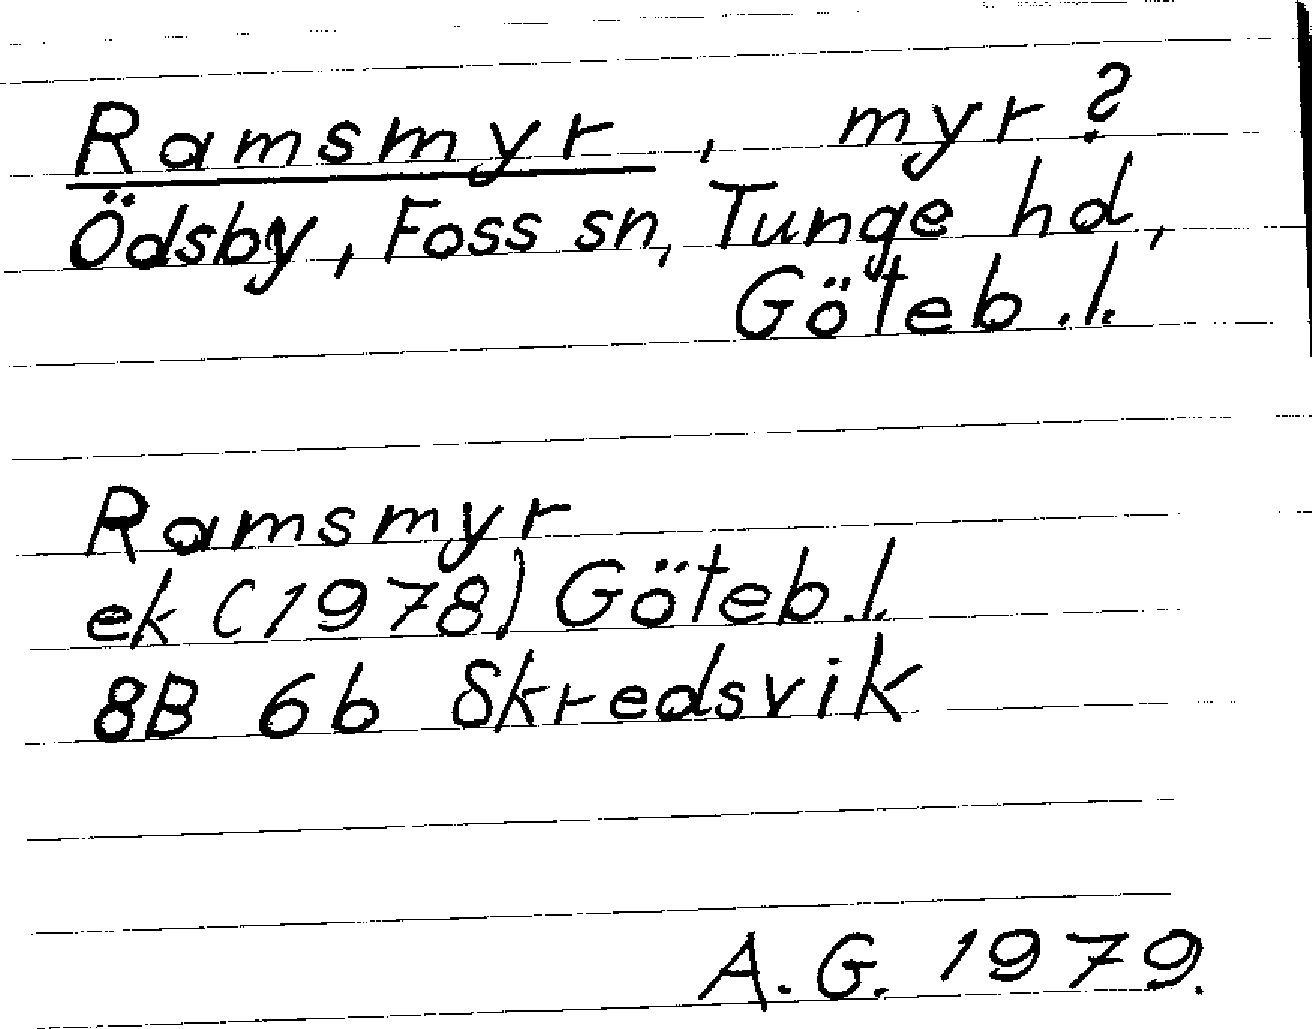 Ramsmyr, myr?
Ödsby, Foss sn, Tunge hd,
Göteb.l.
Ramsmyr
ek (1978) Göteb.l.
8B 6b Skredsvik
A.G. 1979.